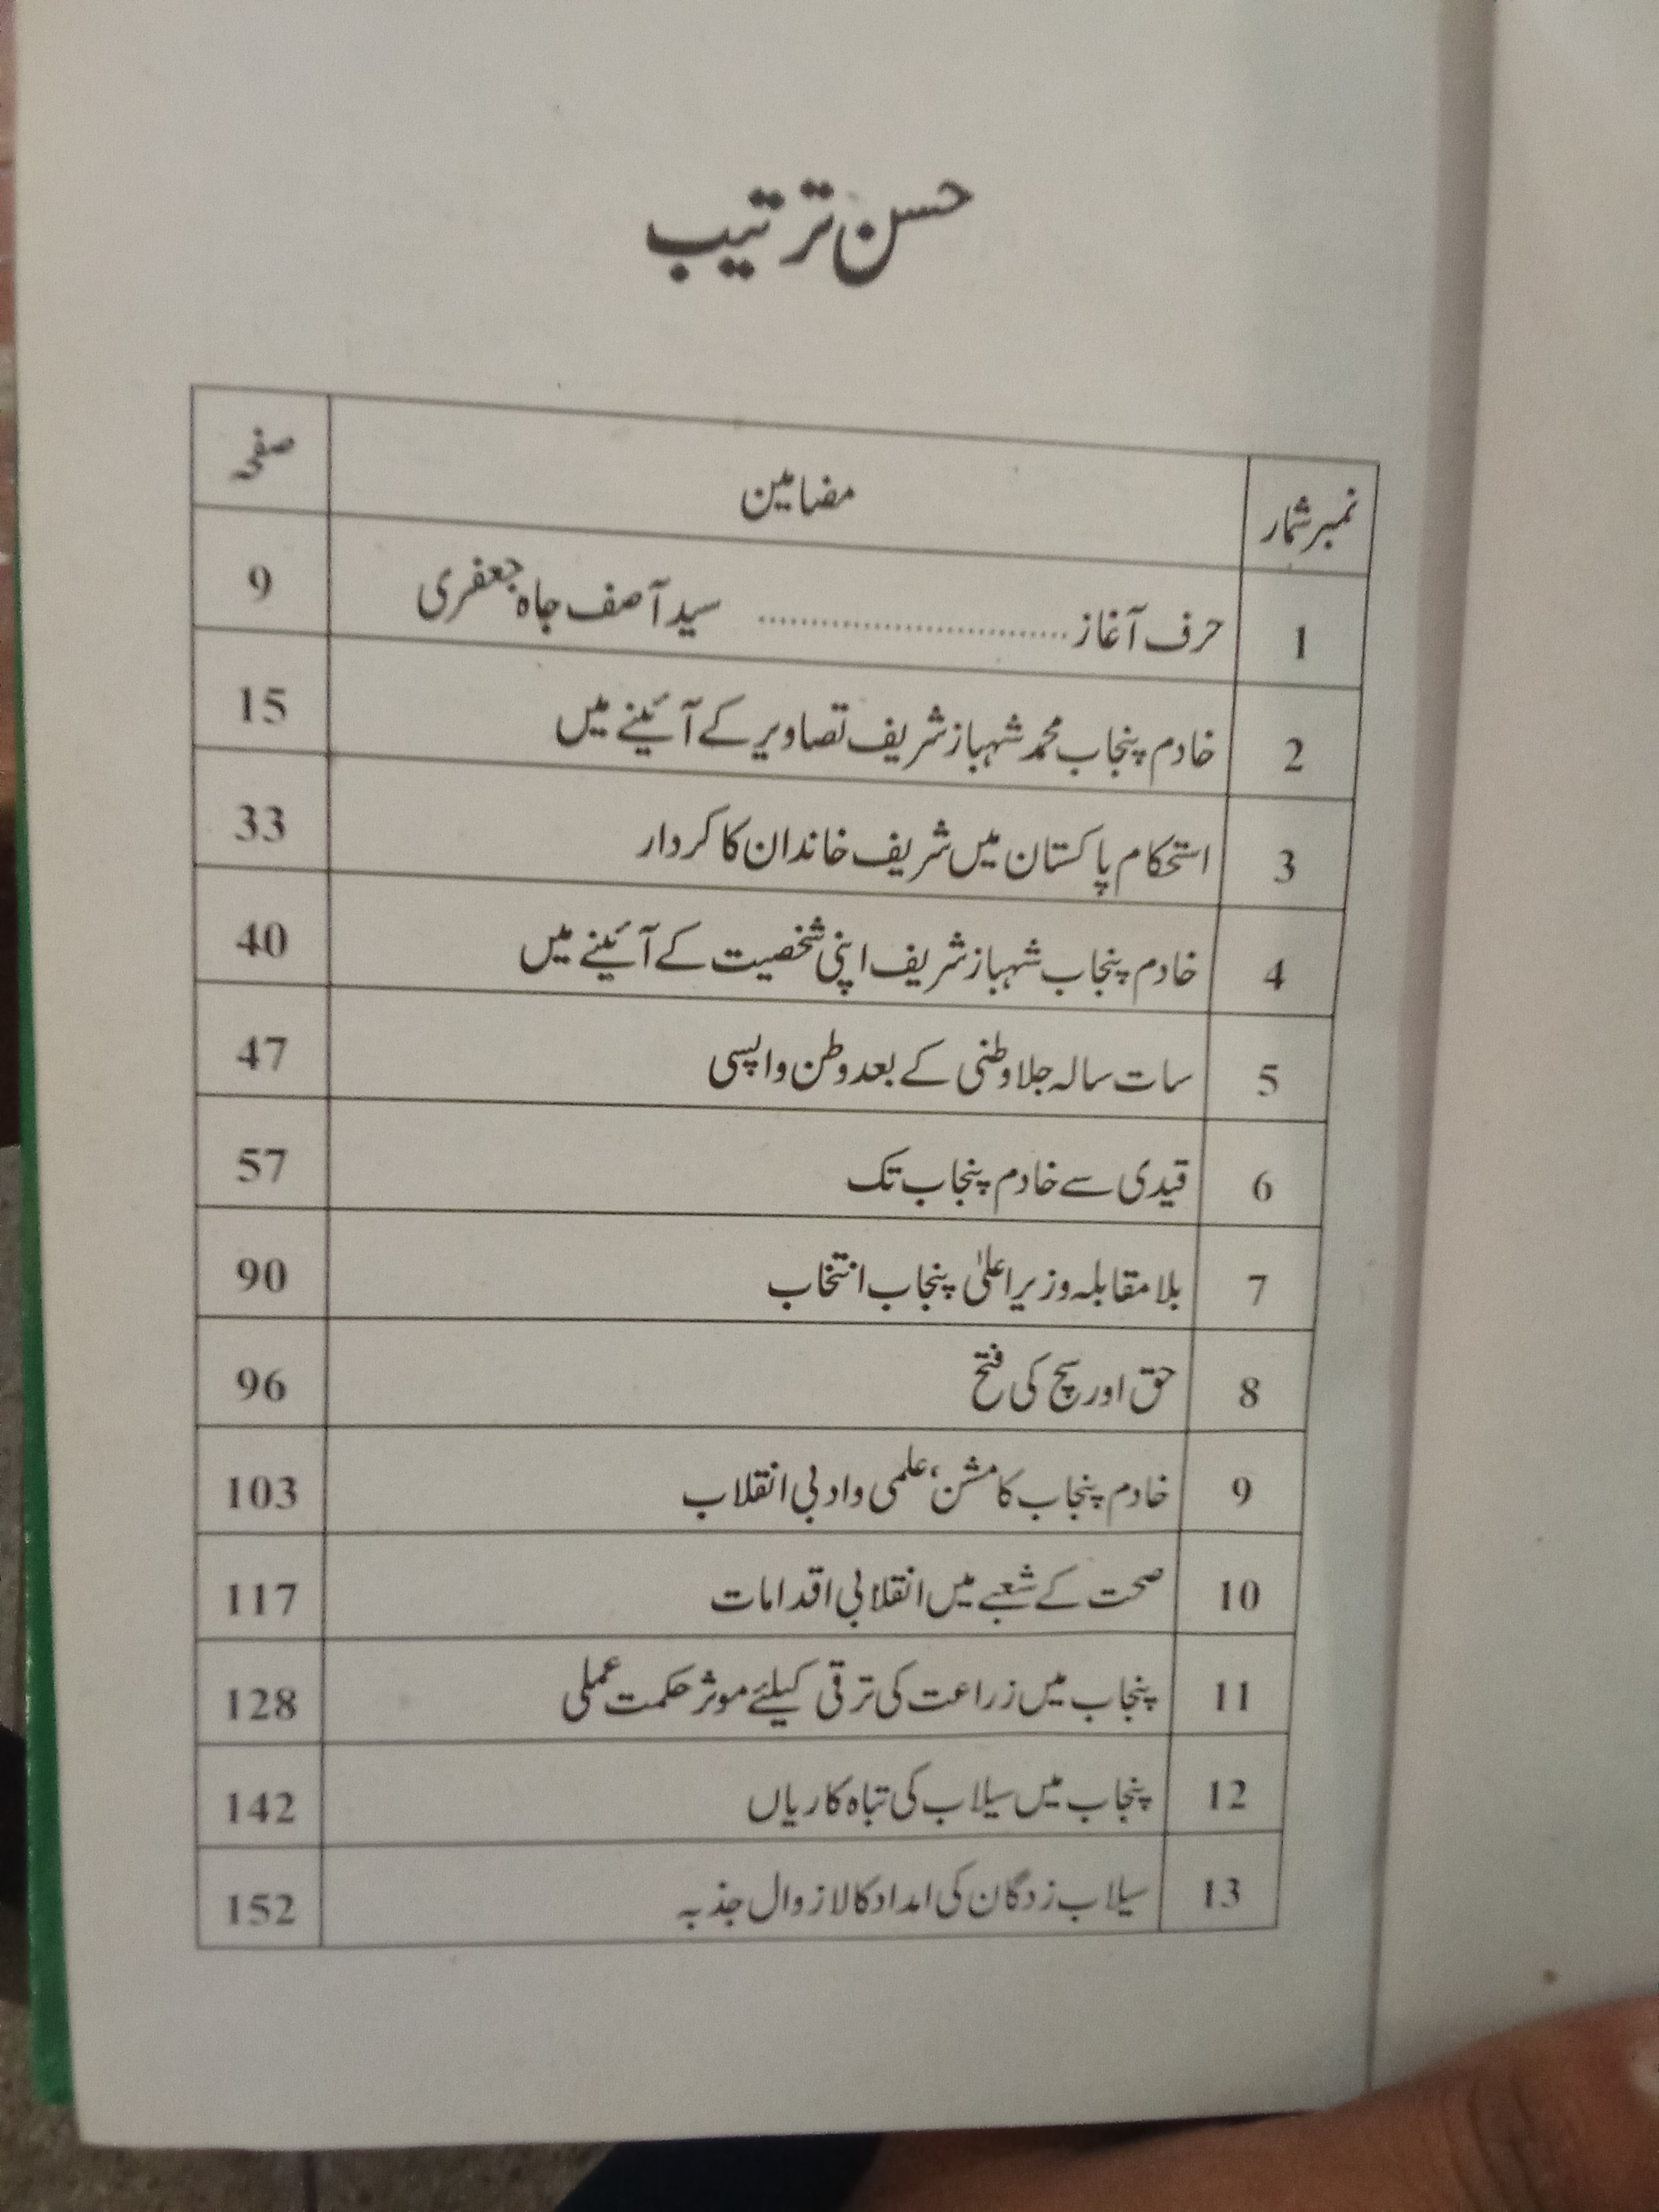 حسن ترتیب
نمبر شمار مضامین صفحہ
1 حرف آغاز .............................. سید آصف جاہ جعفری 9
2 خادم پنجاب محمد شہباز شریف تصاویر کے آئینے میں 15
3 استحکام پاکستان میں شریف خاندان کا کردار 33
4 خادم پنجاب شہباز شریف اپنی شخصیت کے آئینے میں 40
5 سات سالہ جلاوطنی کے بعد وطن واپسی 47
6 قیدی سے خادم پنجاب تک 57
7 بلا مقابلہ وزیر اعلیٰ پنجاب انتخاب 90
8 حق اور سچ کی فتح 96
9 خادم پنجاب کا مشن، علمی و ادبی انقلاب 103
10 صحت کے شعبے میں انقلابی اقدامات 117
11 پنجاب میں زراعت کی ترقی کیلئے موثر حکمت عملی 128
12 پنجاب میں سیلاب کی تباہ کاریاں 142
13 سیلاب زدگان کی امداد کا لازوال جذبہ 152